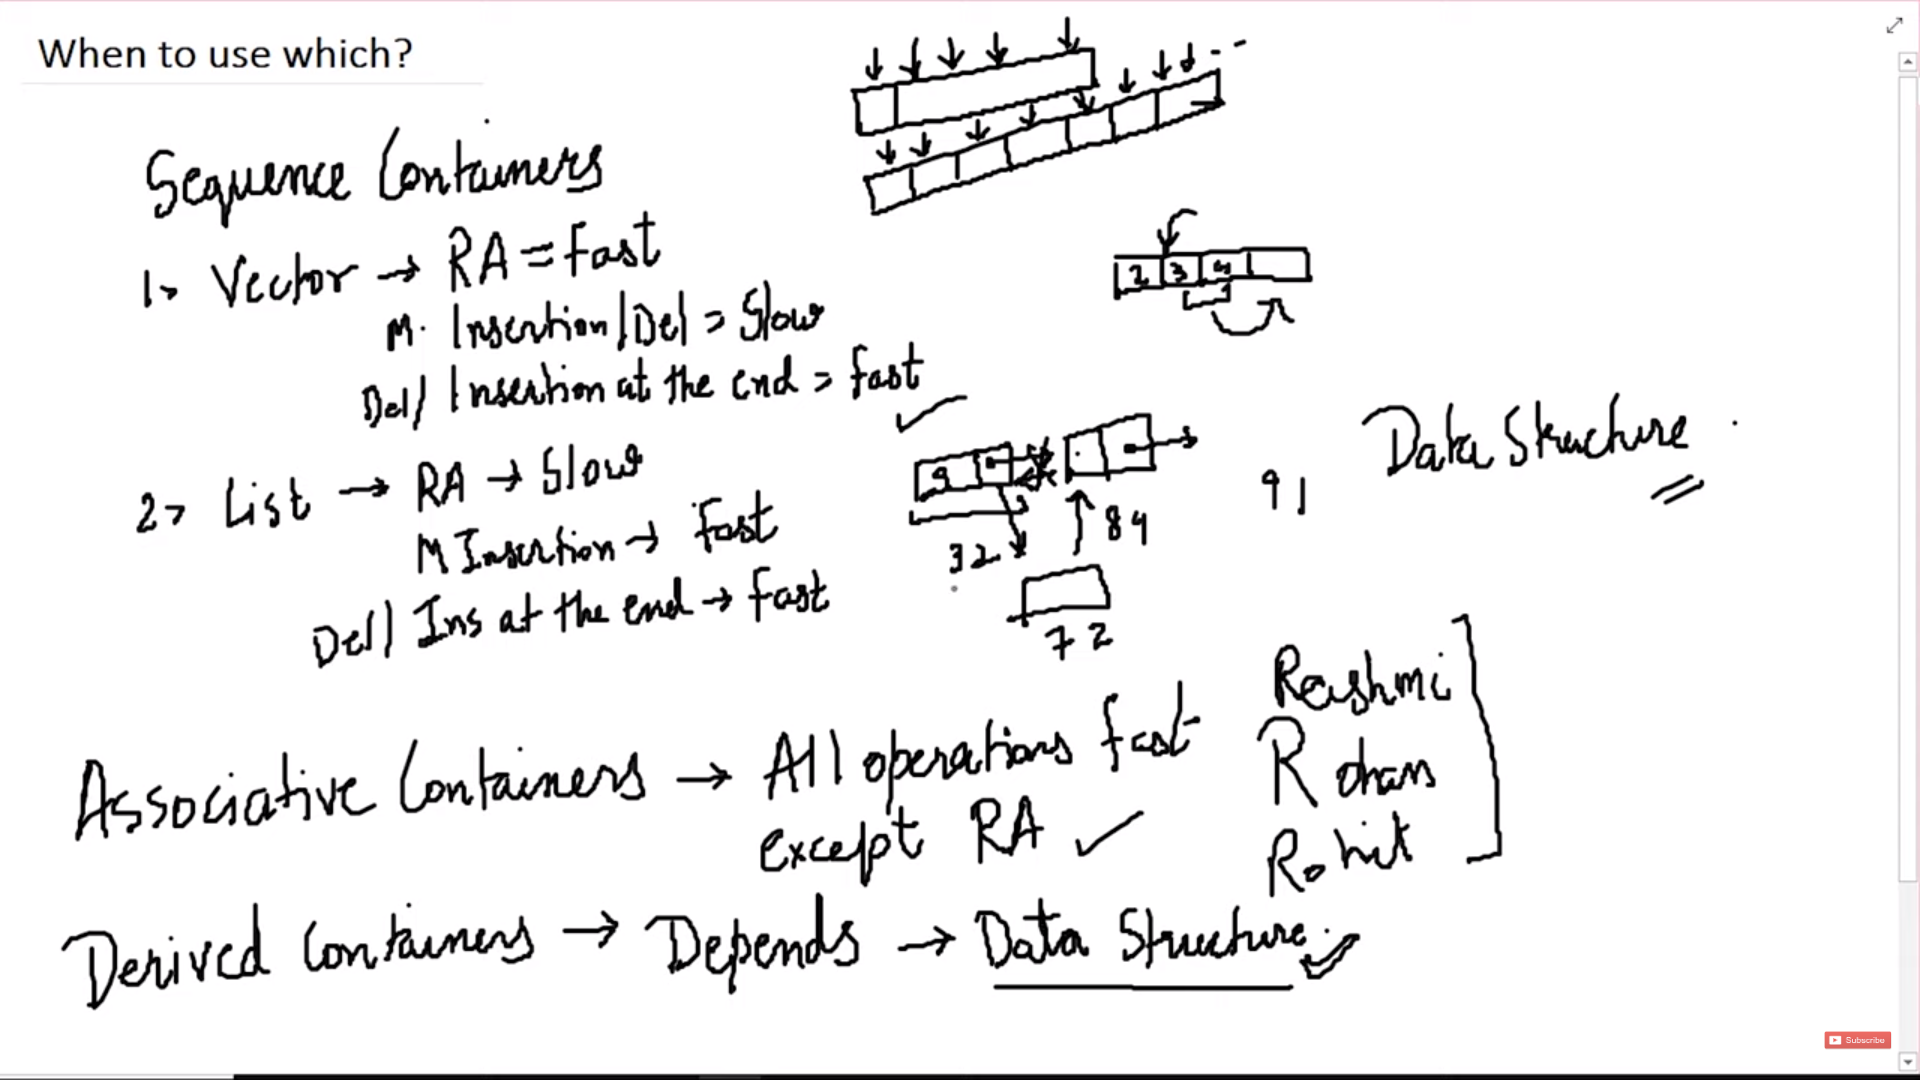 When to use which?
Sequence Containers
1> Vector → RA = fast
M. Insertion/Del = Slow
Del/Insertion at the end = fast
2 3 4
2> List → RA → Slow
M Insertion → fast
Del/Ins at the end → fast
9
32
84
72
91
Data Structure
Associative Containers → All operations fast
except RA ✓
Rashmi
Rohan
Rohit
Derived Containers → Depends → Data Structure.
Subscribe